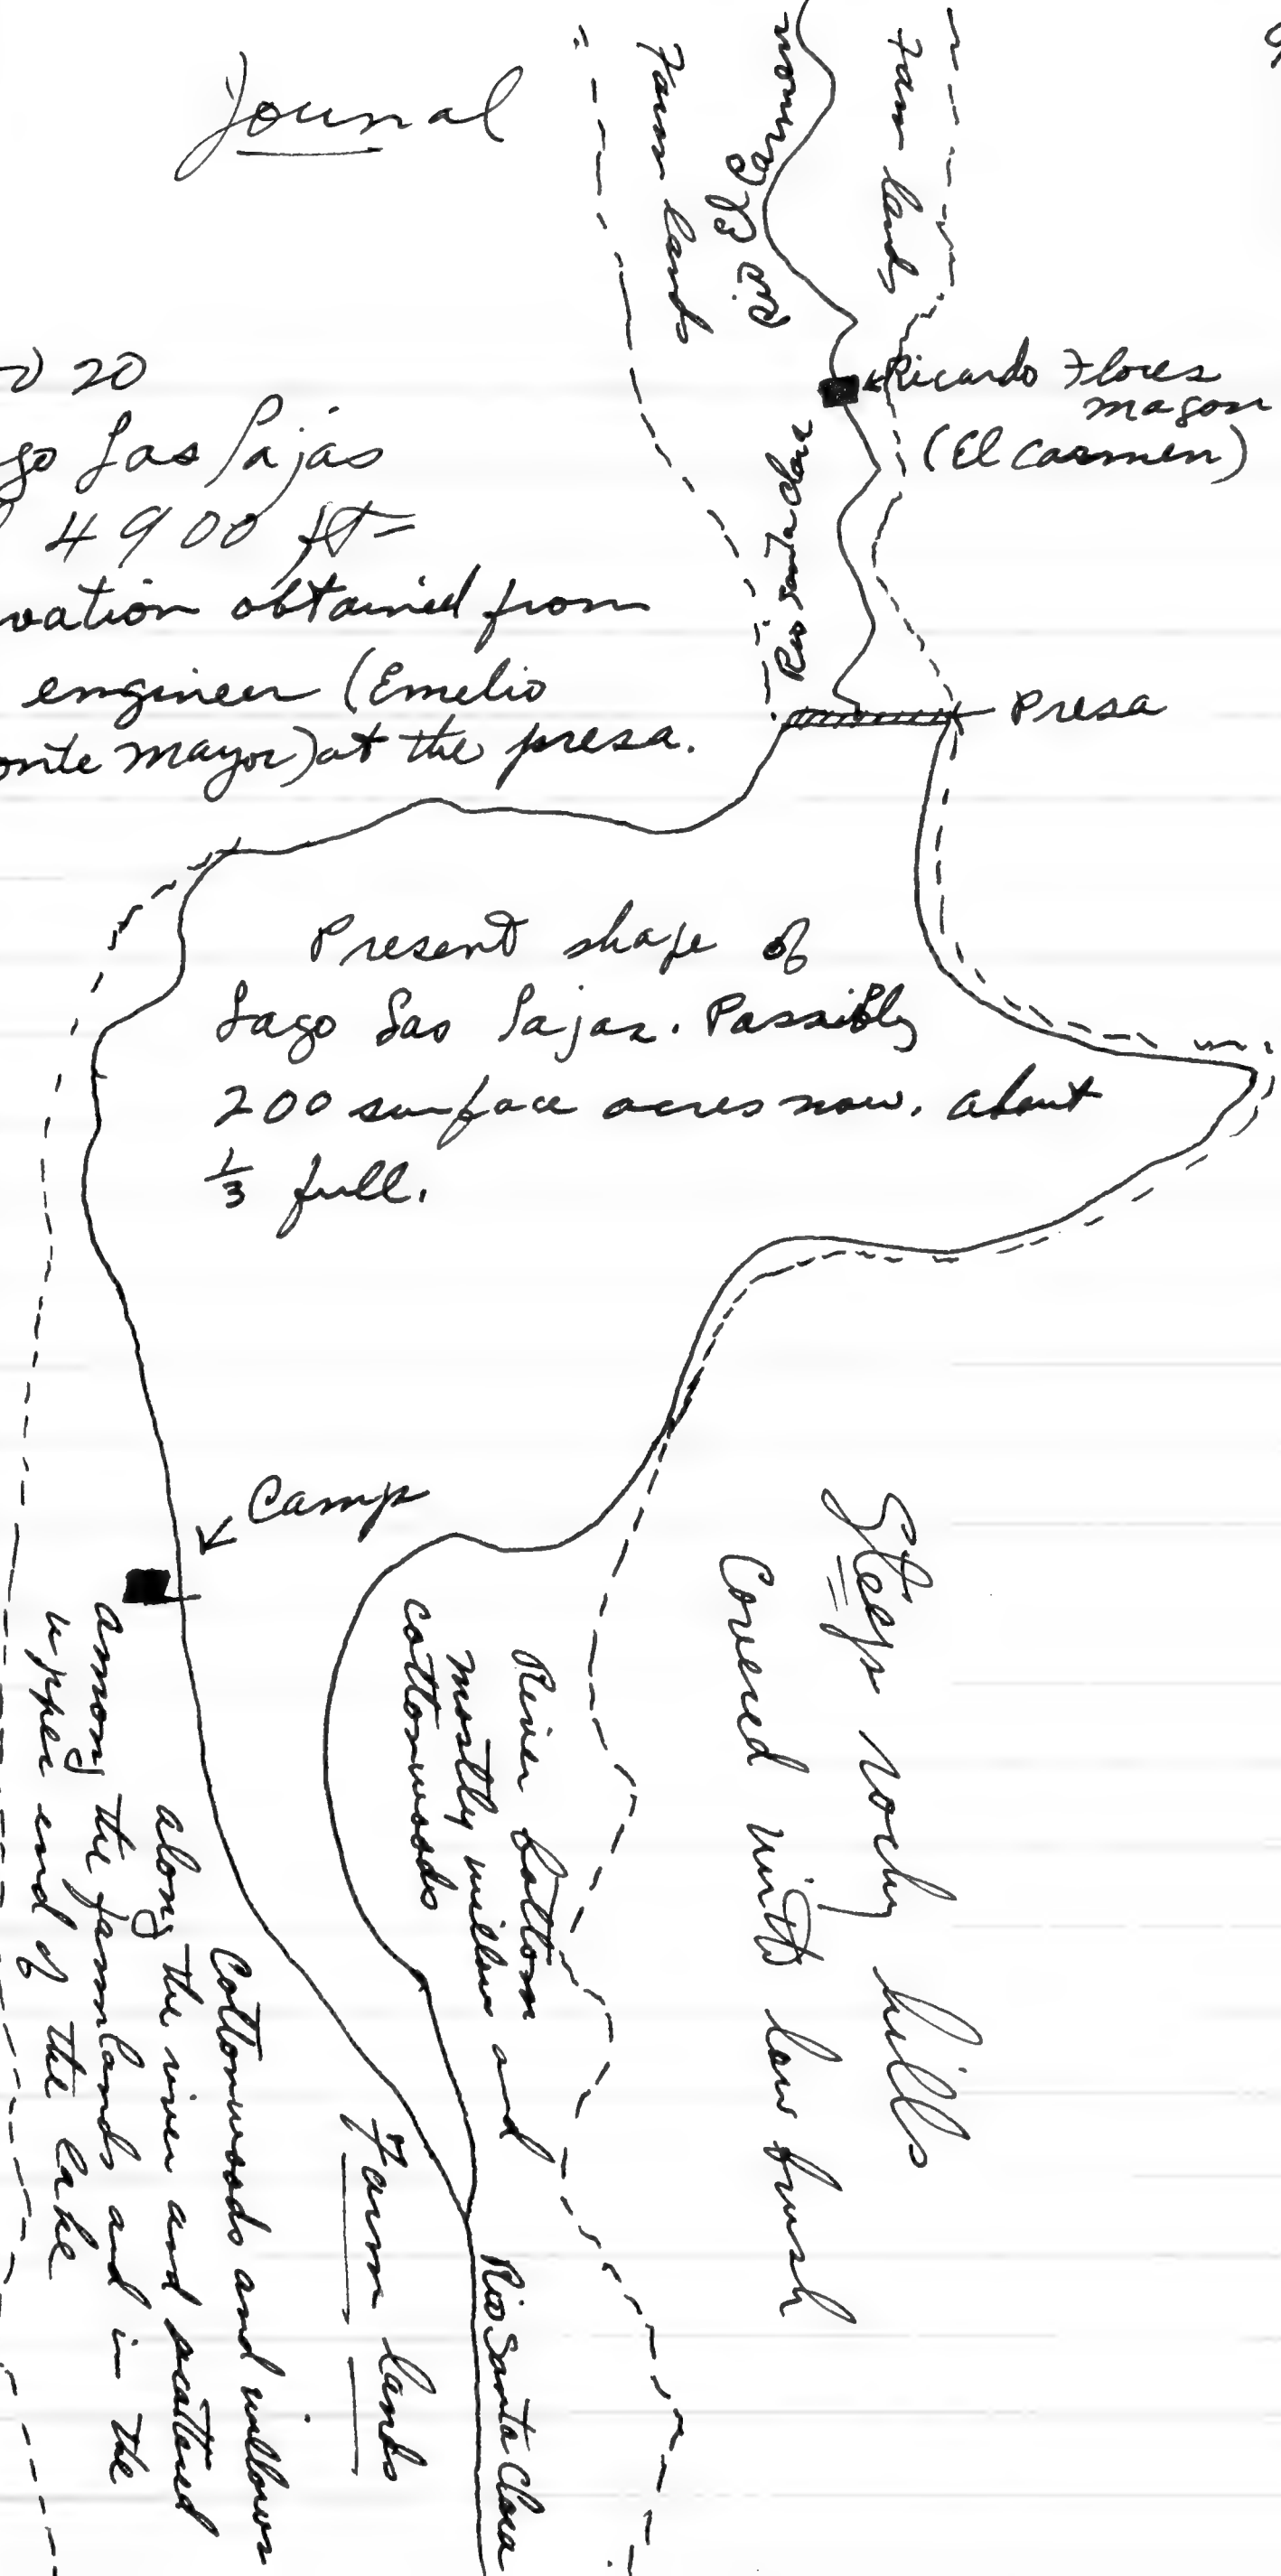 Journal
20
go Las Pajas
4900 ft=
vation obtained from
engineer (Emelio
onte Mayor) at the presa.
Farm lands
Rio El Carmen
Farm lands
Ricardo Flores
magon
(El Carmen)
Rio Santa Clara
Presa
Present shape of
Lago Las Pajas. Possibly
200 surface acres now. about
1/3 full.
Camp
Steep rocky hills
Covered with low brush
River bottom
mostly willow and
cottonwoods
Cottonwoods and willows
along the river and scattered
among the farmlands and in the
upper end of the lake
Farm lands
Rio Santa Clara